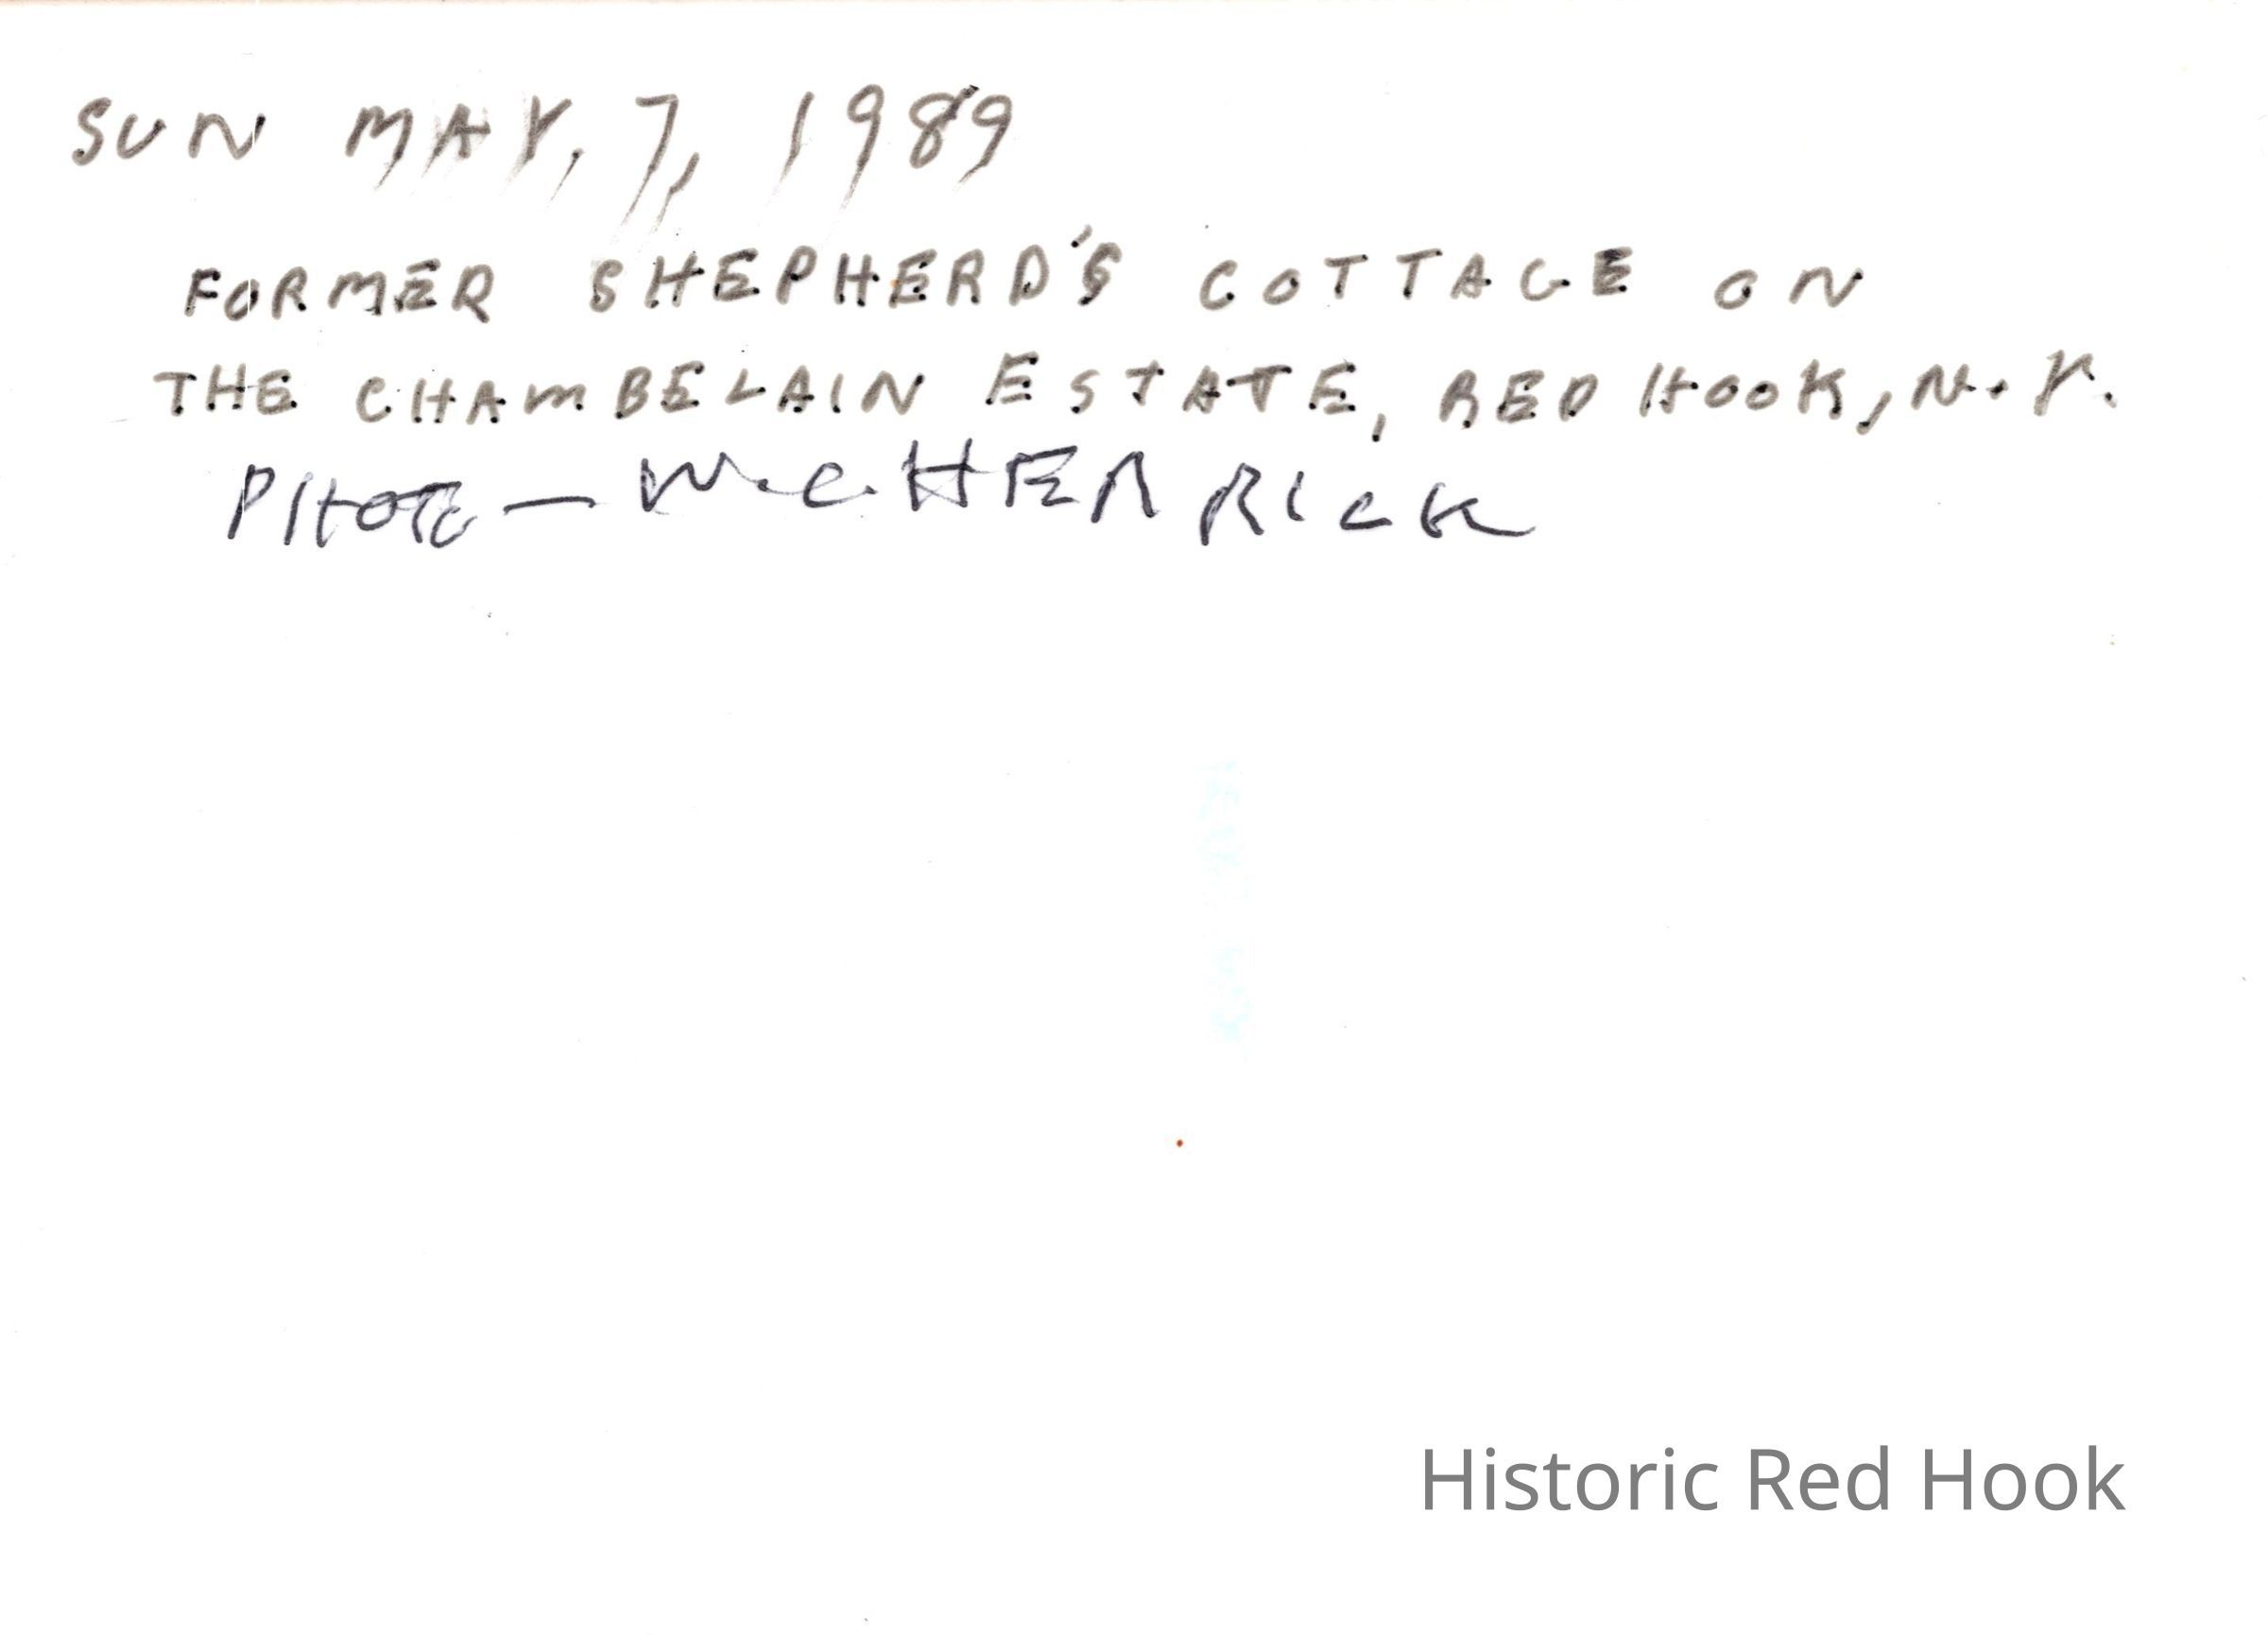 SUN MAY, 7, 1989
FORMER SHEPHERD'S COTTAGE ON
THE CHAMBELAIN ESTATE, RED HOOK, N.Y.
PHOTO — W.C. HERRICK
Historic Red Hook